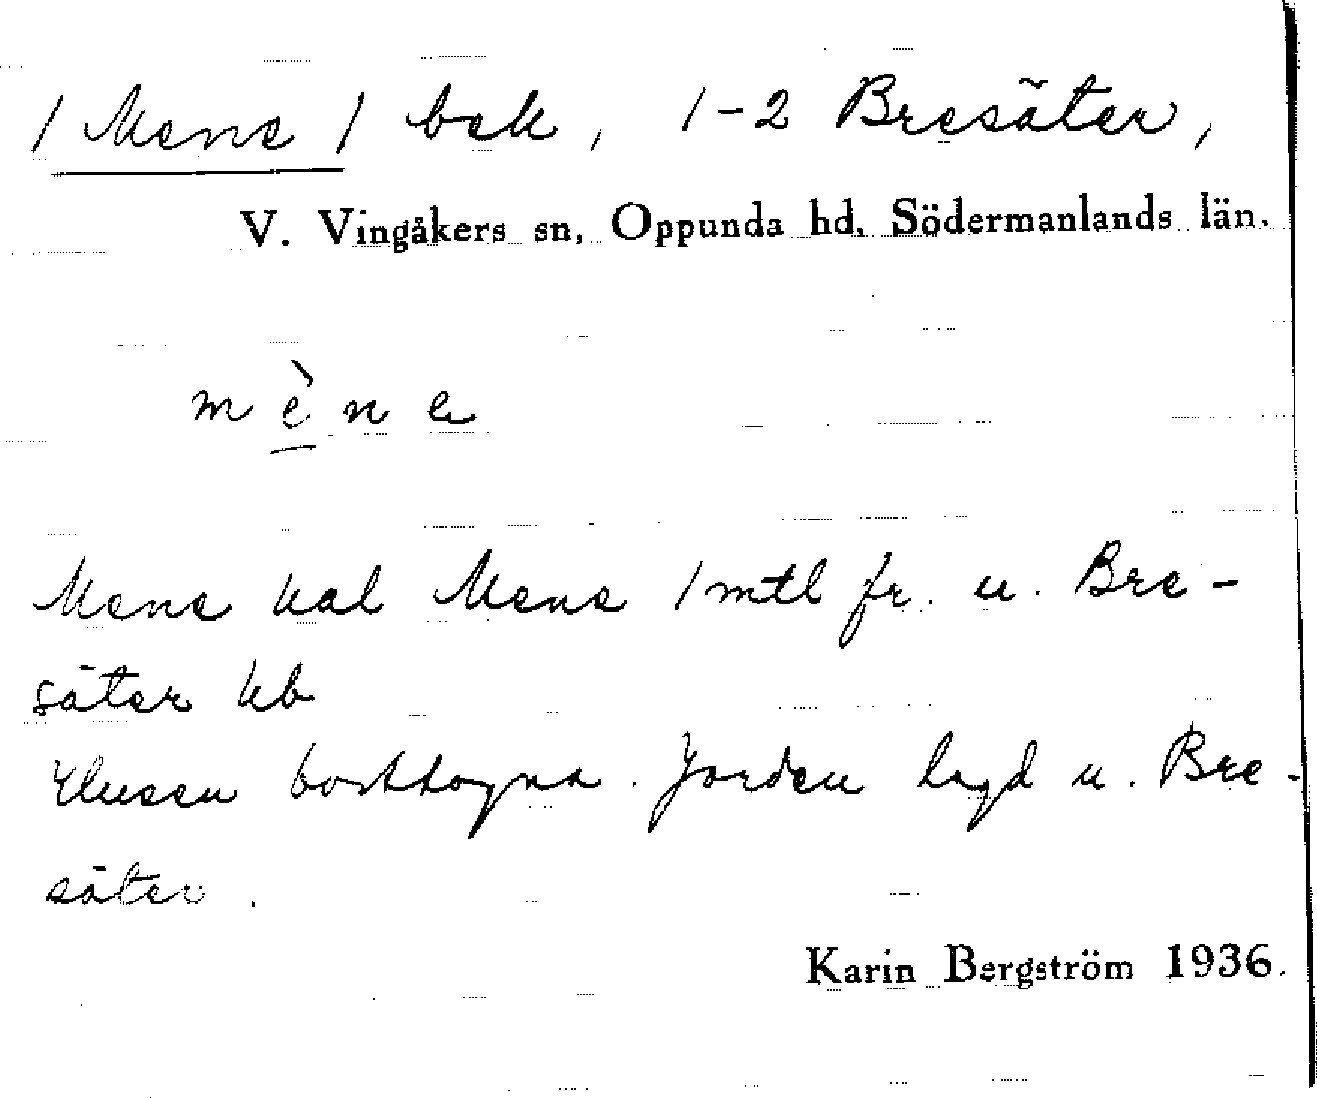 / Mene / bek, 1-2 Bresäter,
V. Vingåkers sn, Oppunda hd, Södermanlands län.
mène
Mene kal Mene 1 mtl fr. u. Bre-
säter kb
Husen borttagna. Jorden lagd u. Bre-
säter.
Karin Bergström 1936.